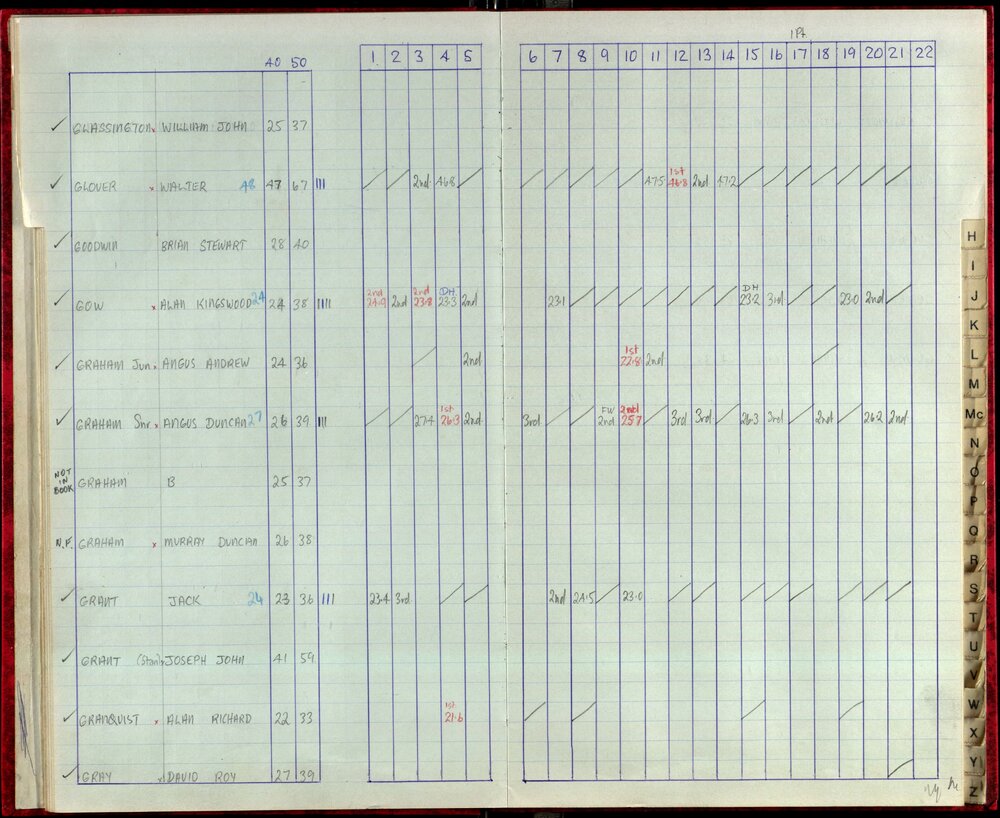 1 Pt
40 50 1 2 3 4 5 6 7 8 9 10 11 12 13 14 15 16 17 18 19 20 21 22
✓ GLASSINGTON x WILLIAM JOHN 25 37
1st
✓ GLOVER x WALTER 48 47 67 III / / 2nd 46.8 / / / / / / 47.5 46.8 2nd 47.2 / / / / / / /
✓ GOODWIN BRIAN STEWART 28 40
2nd 2nd DH DH
✓ GOW x ALAN KINGSWOOD 24 24 38 IIII 24.9 2nd 23.8 23.3 2nd 23.1 / / / / / / / 23.2 3rd / / 23.0 2nd /
1st
✓ GRAHAM Jun. x ANGUS ANDREW 24 36 / 2nd 22.8 2nd /
1st FW 2nd
✓ GRAHAM Snr x ANGUS DUNCAN 27 26 39 III / / 27.4 26.3 2nd 3rd / / 2nd 25.7 / 3rd 3rd / 26.3 3rd / 2nd / 26.2 2nd
NOT
IN
BOOK GRAHAM B 25 37
N.F. GRAHAM x MURRAY DUNCAN 26 38
✓ GRANT JACK 24 23 36 III 23.4 3rd / / 2nd 24.5 / 23.0 / / / / / / / /
✓ GRANT (Stan) x JOSEPH JOHN 41 59
1st
✓ GRANQUIST x ALAN RICHARD 22 33 21.6 / / / /
✓ GRAY x DAVID ROY 27 39 /
H
I
J
K
L
M
Mc
N
O
P
Q
R
S
T
U
V
W
X
Y
Z